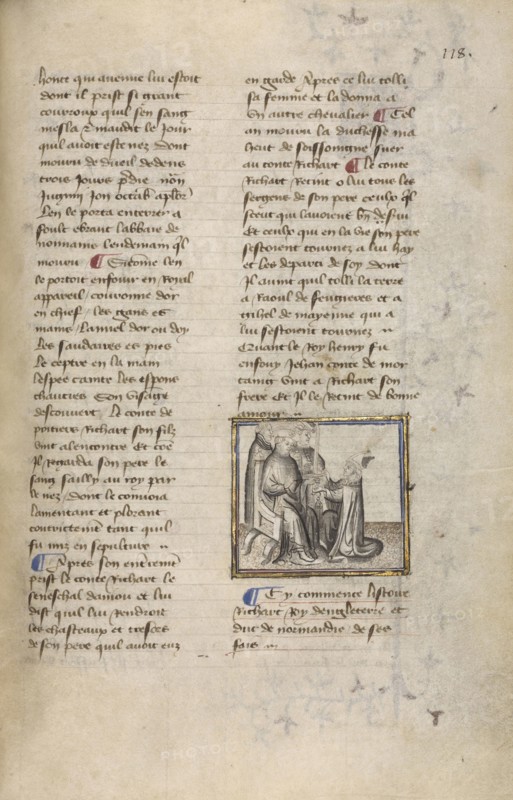 118.
honte qui auenue lui estoit
dont il prist si grant
courroux quil sen sang
mesla & maudit le Jour
quil auoit este nez dont
mouru de dueil dedens
trois Jours
Len le porta enterrer a
font ebraut labbaie de
nonnains lendemain ql
mouru ¶ Sicome len
le portoit enfouir en Roial
appareil / couronne dor
en chief / les gans es
mains / Lannel dor ou doy
Les saudaires es pies
Le ceptre en la main
lespee cainte les esperons
chauciez Son visaige
descouuert / Le conte de
poitiers Richart son filz
vint alencontre Et coe
Il Regarda son pere le
sang sailly au roy par
le nez / dont le conuoia
lamentant et plorant
tant quil
fu mis en sepulture
¶ Apres son enterremt
prist le conte Richart le
seneschal daniou et lui
dist quil lui Rendroit
les chasteaux et tresors
de son pere quil auoit euz
en garde Apres ce lui tolli
sa femme et la donna a
vn autre chevalier ¶ Cel
an mouru la duchesse ma
heut de seuer
au conte Richart ¶ Le conte
Richart Retint o lui tous les
sergens de son pere ceulx ql
sceut qui lauoient bn desui
Et ceulx qui en la vie son pere
sestoient tournez a lui hay
et les departi de soy dont
Il auint quil tolli la terre
a Raoul de feugieres et a
de mayenne qui a
lui sestoient tournez
Quant le Roy henry fu
enfouy Jehan conte de mor
taing vint a Richart son
frere Et Il le Retint de bonne
amour
¶ Cy commence listoire
Richart Roy dengleterre et
duc de normandie de ses
fais